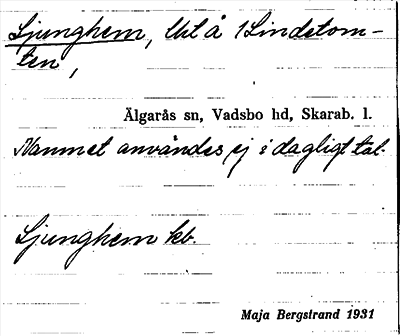 Ljunghem, Utå 1 Lindstom-
ten,
Älgarås sn, Vadsbo hd, Skarab. l.
Namnet användes ej i dagligt tal.
Ljunghem kb.
Maja Bergstrand 1931